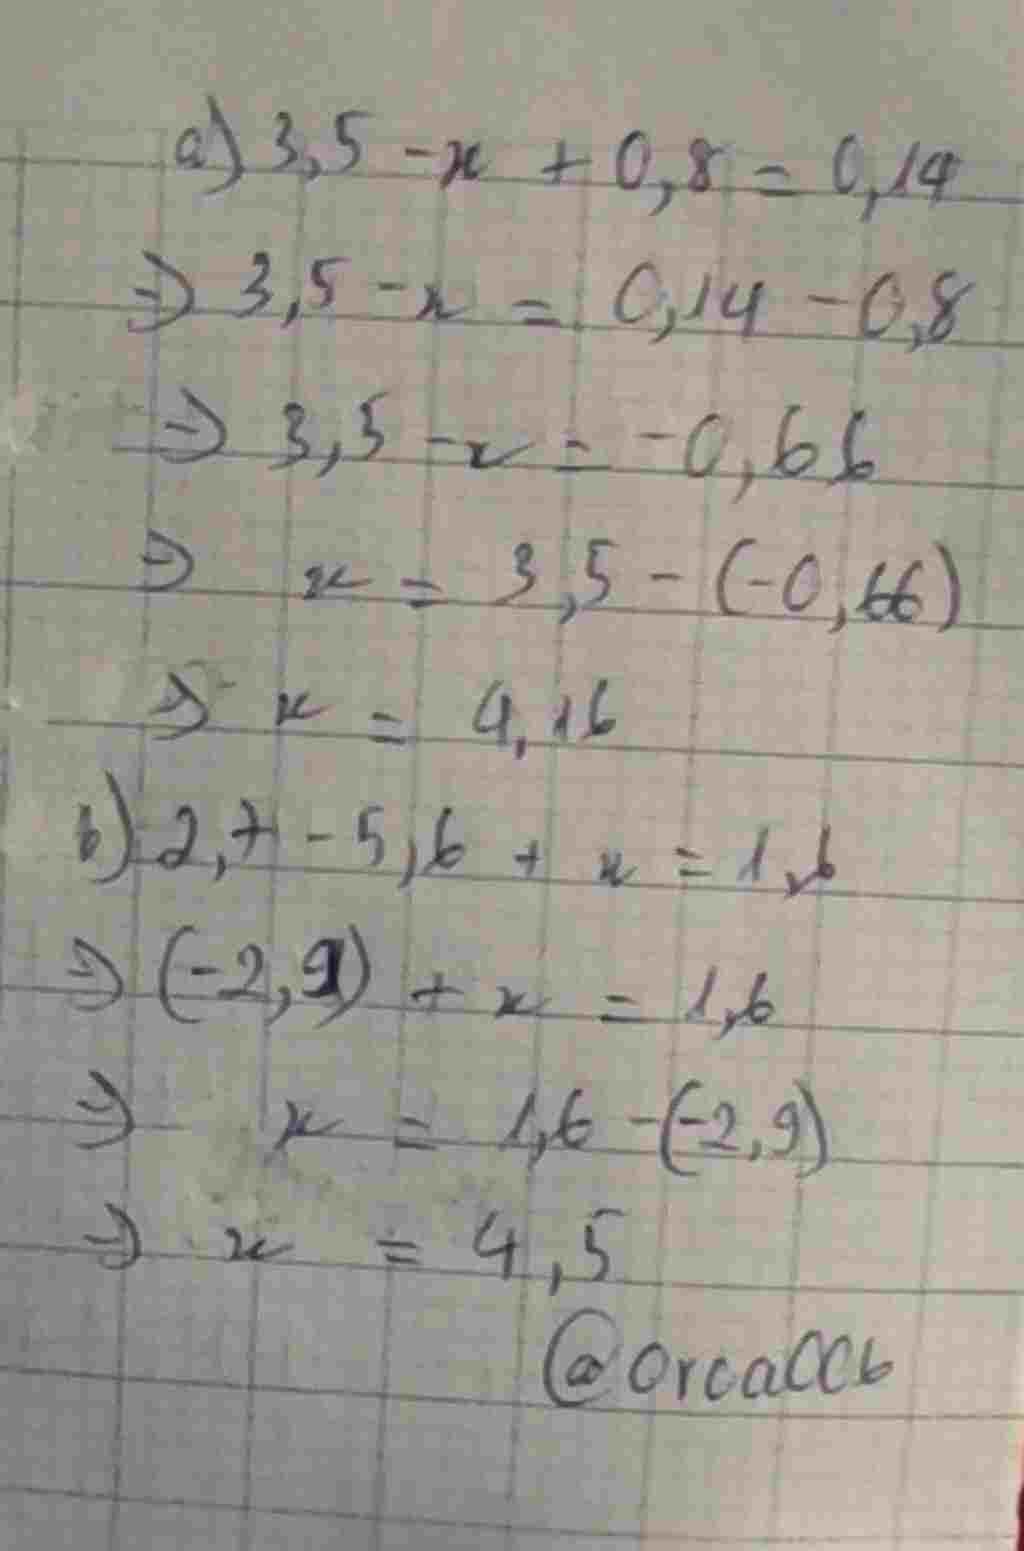 a) 3,5 - x + 0,8 = 0,14
=> 3,5 - x = 0,14 - 0,8
=> 3,5 - x = -0,66
=> x = 3,5 - (-0,66)
=> x = 4,16
b) 2,7 - 5,6 + x = 1,6
=> (-2,9) + x = 1,6
=> x = 1,6 - (-2,9)
=> x = 4,5
@orcaCCb